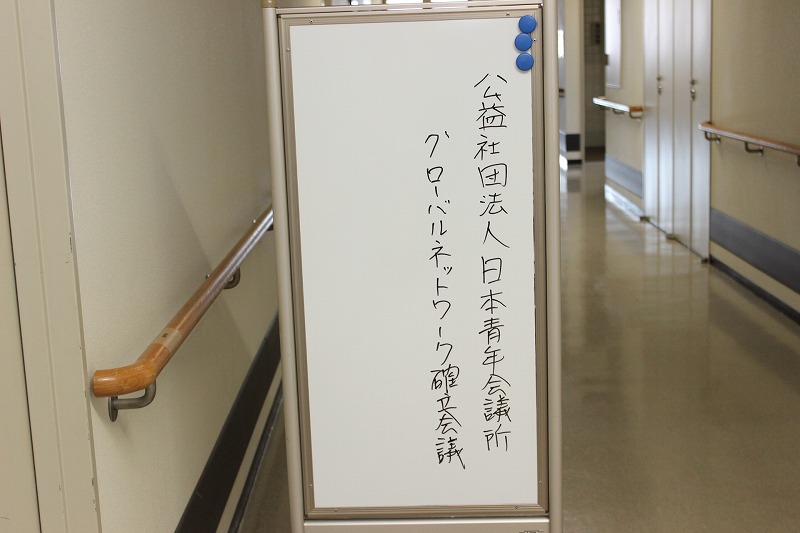 公益社団法人日本青年会議所
グローバルネットワーク確立会議